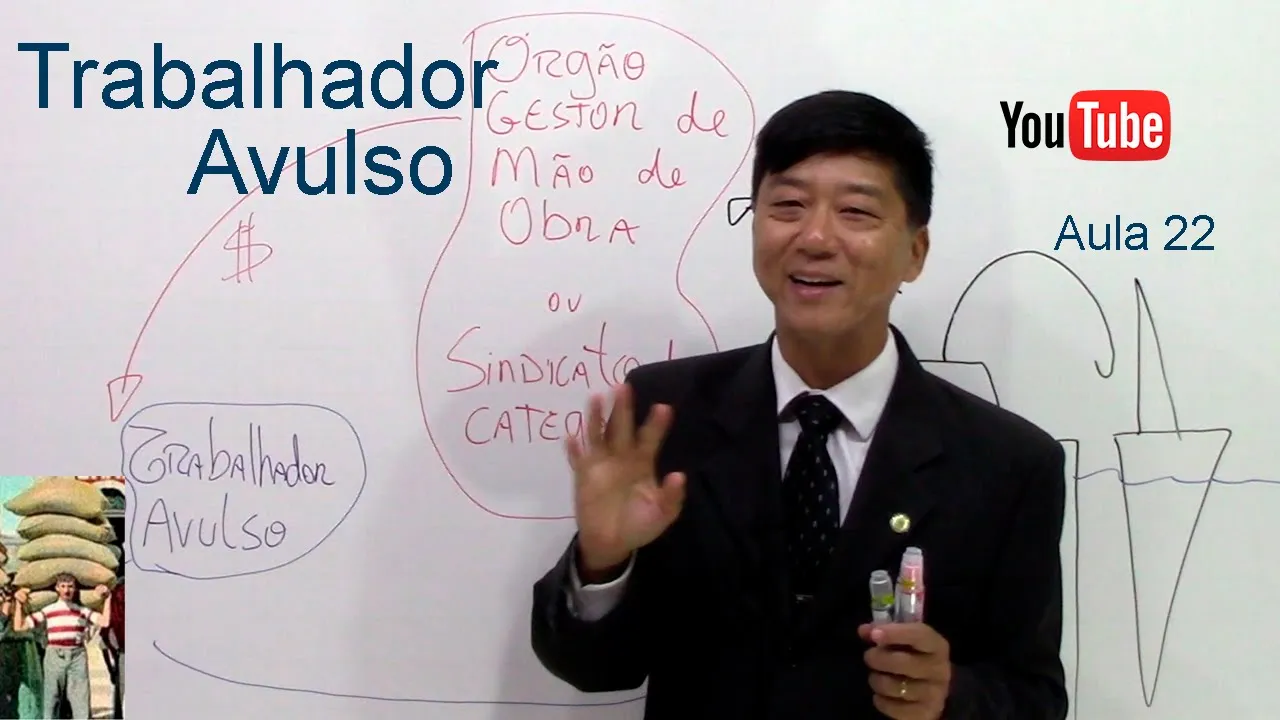 Trabalhador
Avulso
Órgão
Gestor de
Mão de
Obra
ou
Sindicato
$
Trabalhador
Avulso
YouTube
Aula 22